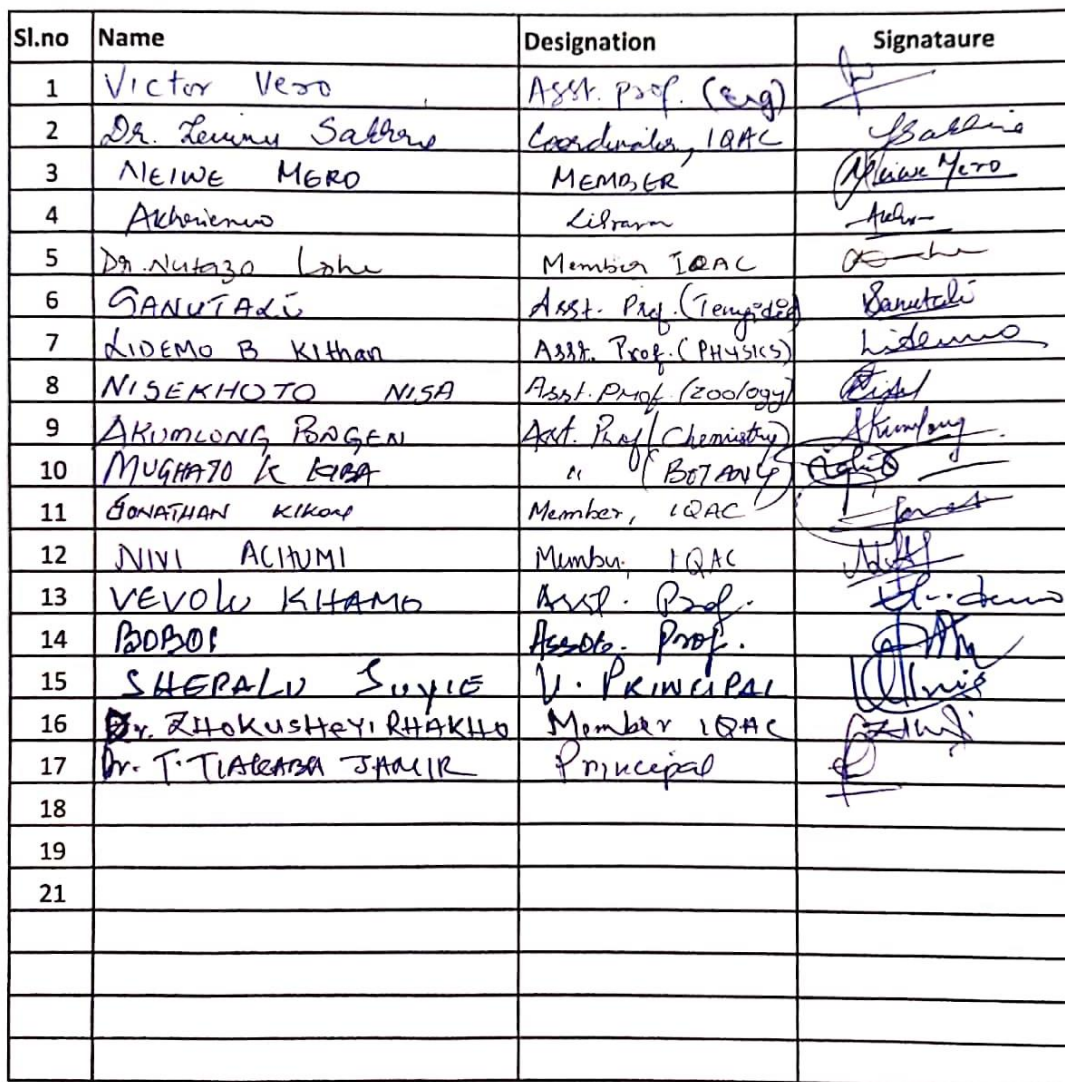 Sl.no Name Designation Signataure
1 Victor Vero Asst. Prof. (Eng)
2 Dr. Coordinator, IQAC
3 NEIWE MERO MEMBER Neiwe Mero
4 Akhrienuo
5 Dr. Nutazo Lohe Member IQAC
6 SANUTALÜ Asst. Prof. (Tenyidie) Sanutalü
7 LIDEMO B Kithan Asst. Prof. (PHYSICS) Lidemo
8 NISEKHOTO NISA Asst. Prof. (Zoology)
9 AKUMLONG PONGEN Asst. Prof (Chemistry) Akumlong
10 MUGHATO K KIBA " (BOTANY)
11 JONATHAN KIKON Member, IQAC
12 NIVI ACHUMI Member, IQAC
13 VEVOLU KHAMO Asst. Prof.
14 BOBOI Assoc. Prof.
15 SHEPALU SUYIE V. PRINCIPAL
16 Dr. ZHOKUSHEYI RHAKHO Member IQAC
17 Dr. T. TIAKABA JAMIR Principal
18
19
21